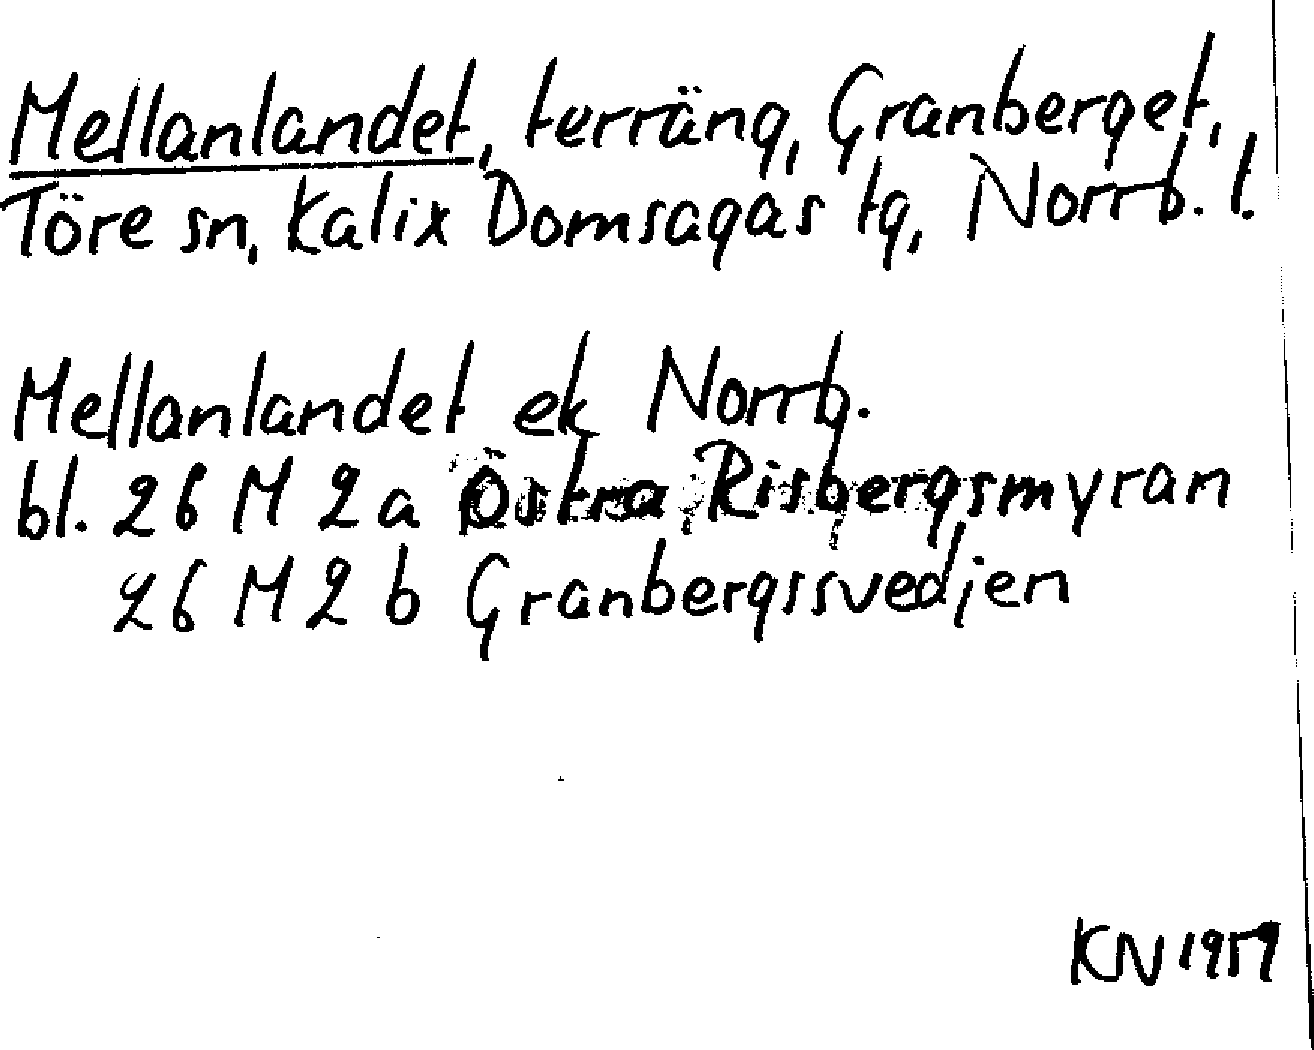 Mellanlandet, terräng, Granberget,
Töre sn, Kalix Domsagas tg, Norrb. l.
Mellanlandet ek Norrb.
bl. 26 M 2a Östra Risbergsmyran
26 M 2 b Granbergssvedjen
KN